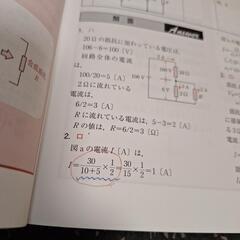 解 面
Answer
1. ハ
20Ωの抵抗に加わっている電圧は,
106−6=100〔V〕
回路全体の電流
は,
100/20=5〔A〕
2Ωに流れている
電流は,
6/2=3〔A〕
Rに流れている電流は, 5−3=2〔A〕
Rの値は, R=6/2=3〔Ω〕
2. ロ
図aの電流I〔A〕は,
I=30/(10+5)×1/2=30/15×1/2=1〔A〕
合成抵抗
R
106V
6V
2Ω
R